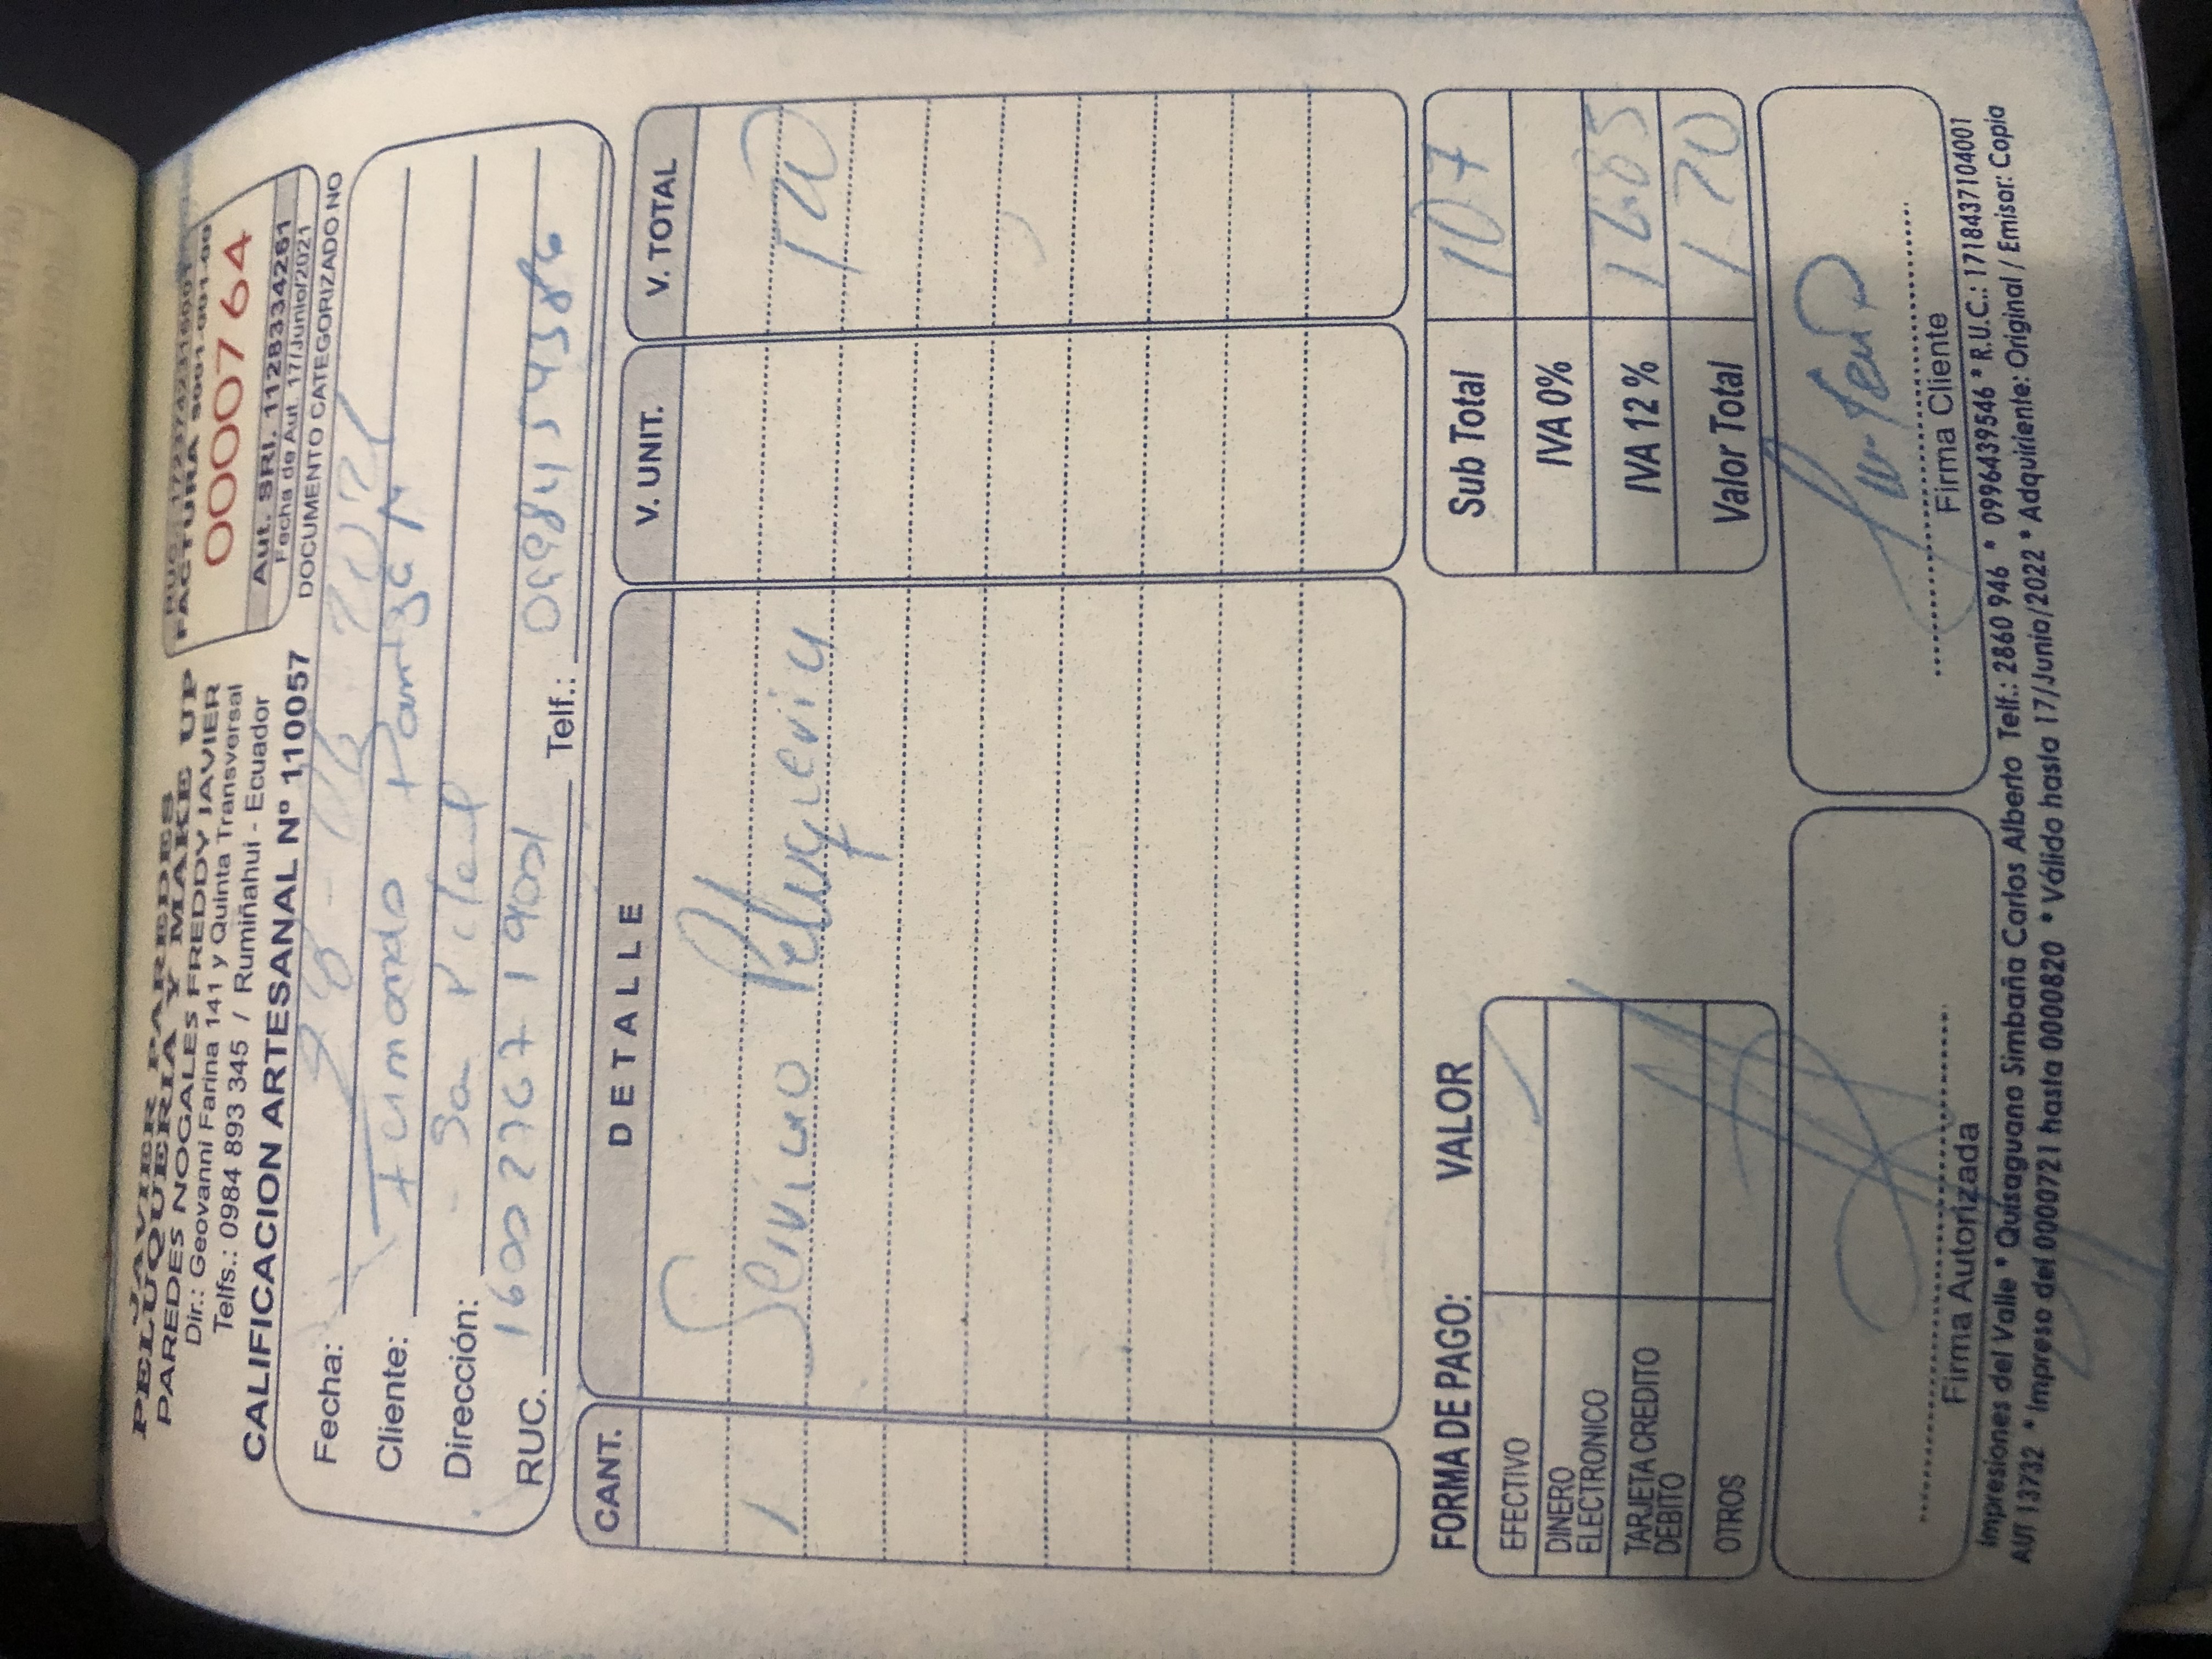 JAVIER PAREDES
PELUQUERIA Y MAKE UP
PAREDES NOGALES FREDDY JAVIER
Dir.: Geovanni Farina 141 y Quinta Transversal
Telfs.: 0984 893 345 / Rumiñahui - Ecuador
CALIFICACION ARTESANAL Nº 110057
RUC.: 1723742316001
FACTURA S001-001-00
0000764
Aut. SRI. 1128334261
Fecha de Aut. 17/Junio/2021
DOCUMENTO CATEGORIZADO NO
Fecha: 28-06-2021
Cliente: Fernando
Dirección: San Rafael
RUC. 1600276719001 Telf.: 0998454386
CANT. DETALLE V. UNIT. V. TOTAL
1 Servicio Peluqueria 120
FORMA DE PAGO: VALOR
EFECTIVO
DINERO
ELECTRONICO
TARJETA CREDITO
DEBITO
OTROS
Sub Total 107
IVA 0%
IVA 12 % 12.85
Valor Total 120
Firma Autorizada
Firma Cliente
Impresiones del Valle * Quisaguano Simbaña Carlos Alberto Telf.: 2860 946 * 0996439546 * R.U.C.: 1718437104001
AUT 13732 * Impreso del 0000721 hasta 0000820 * Válido hasta 17/Junio/2022 * Adquiriente: Original / Emisor: Copia